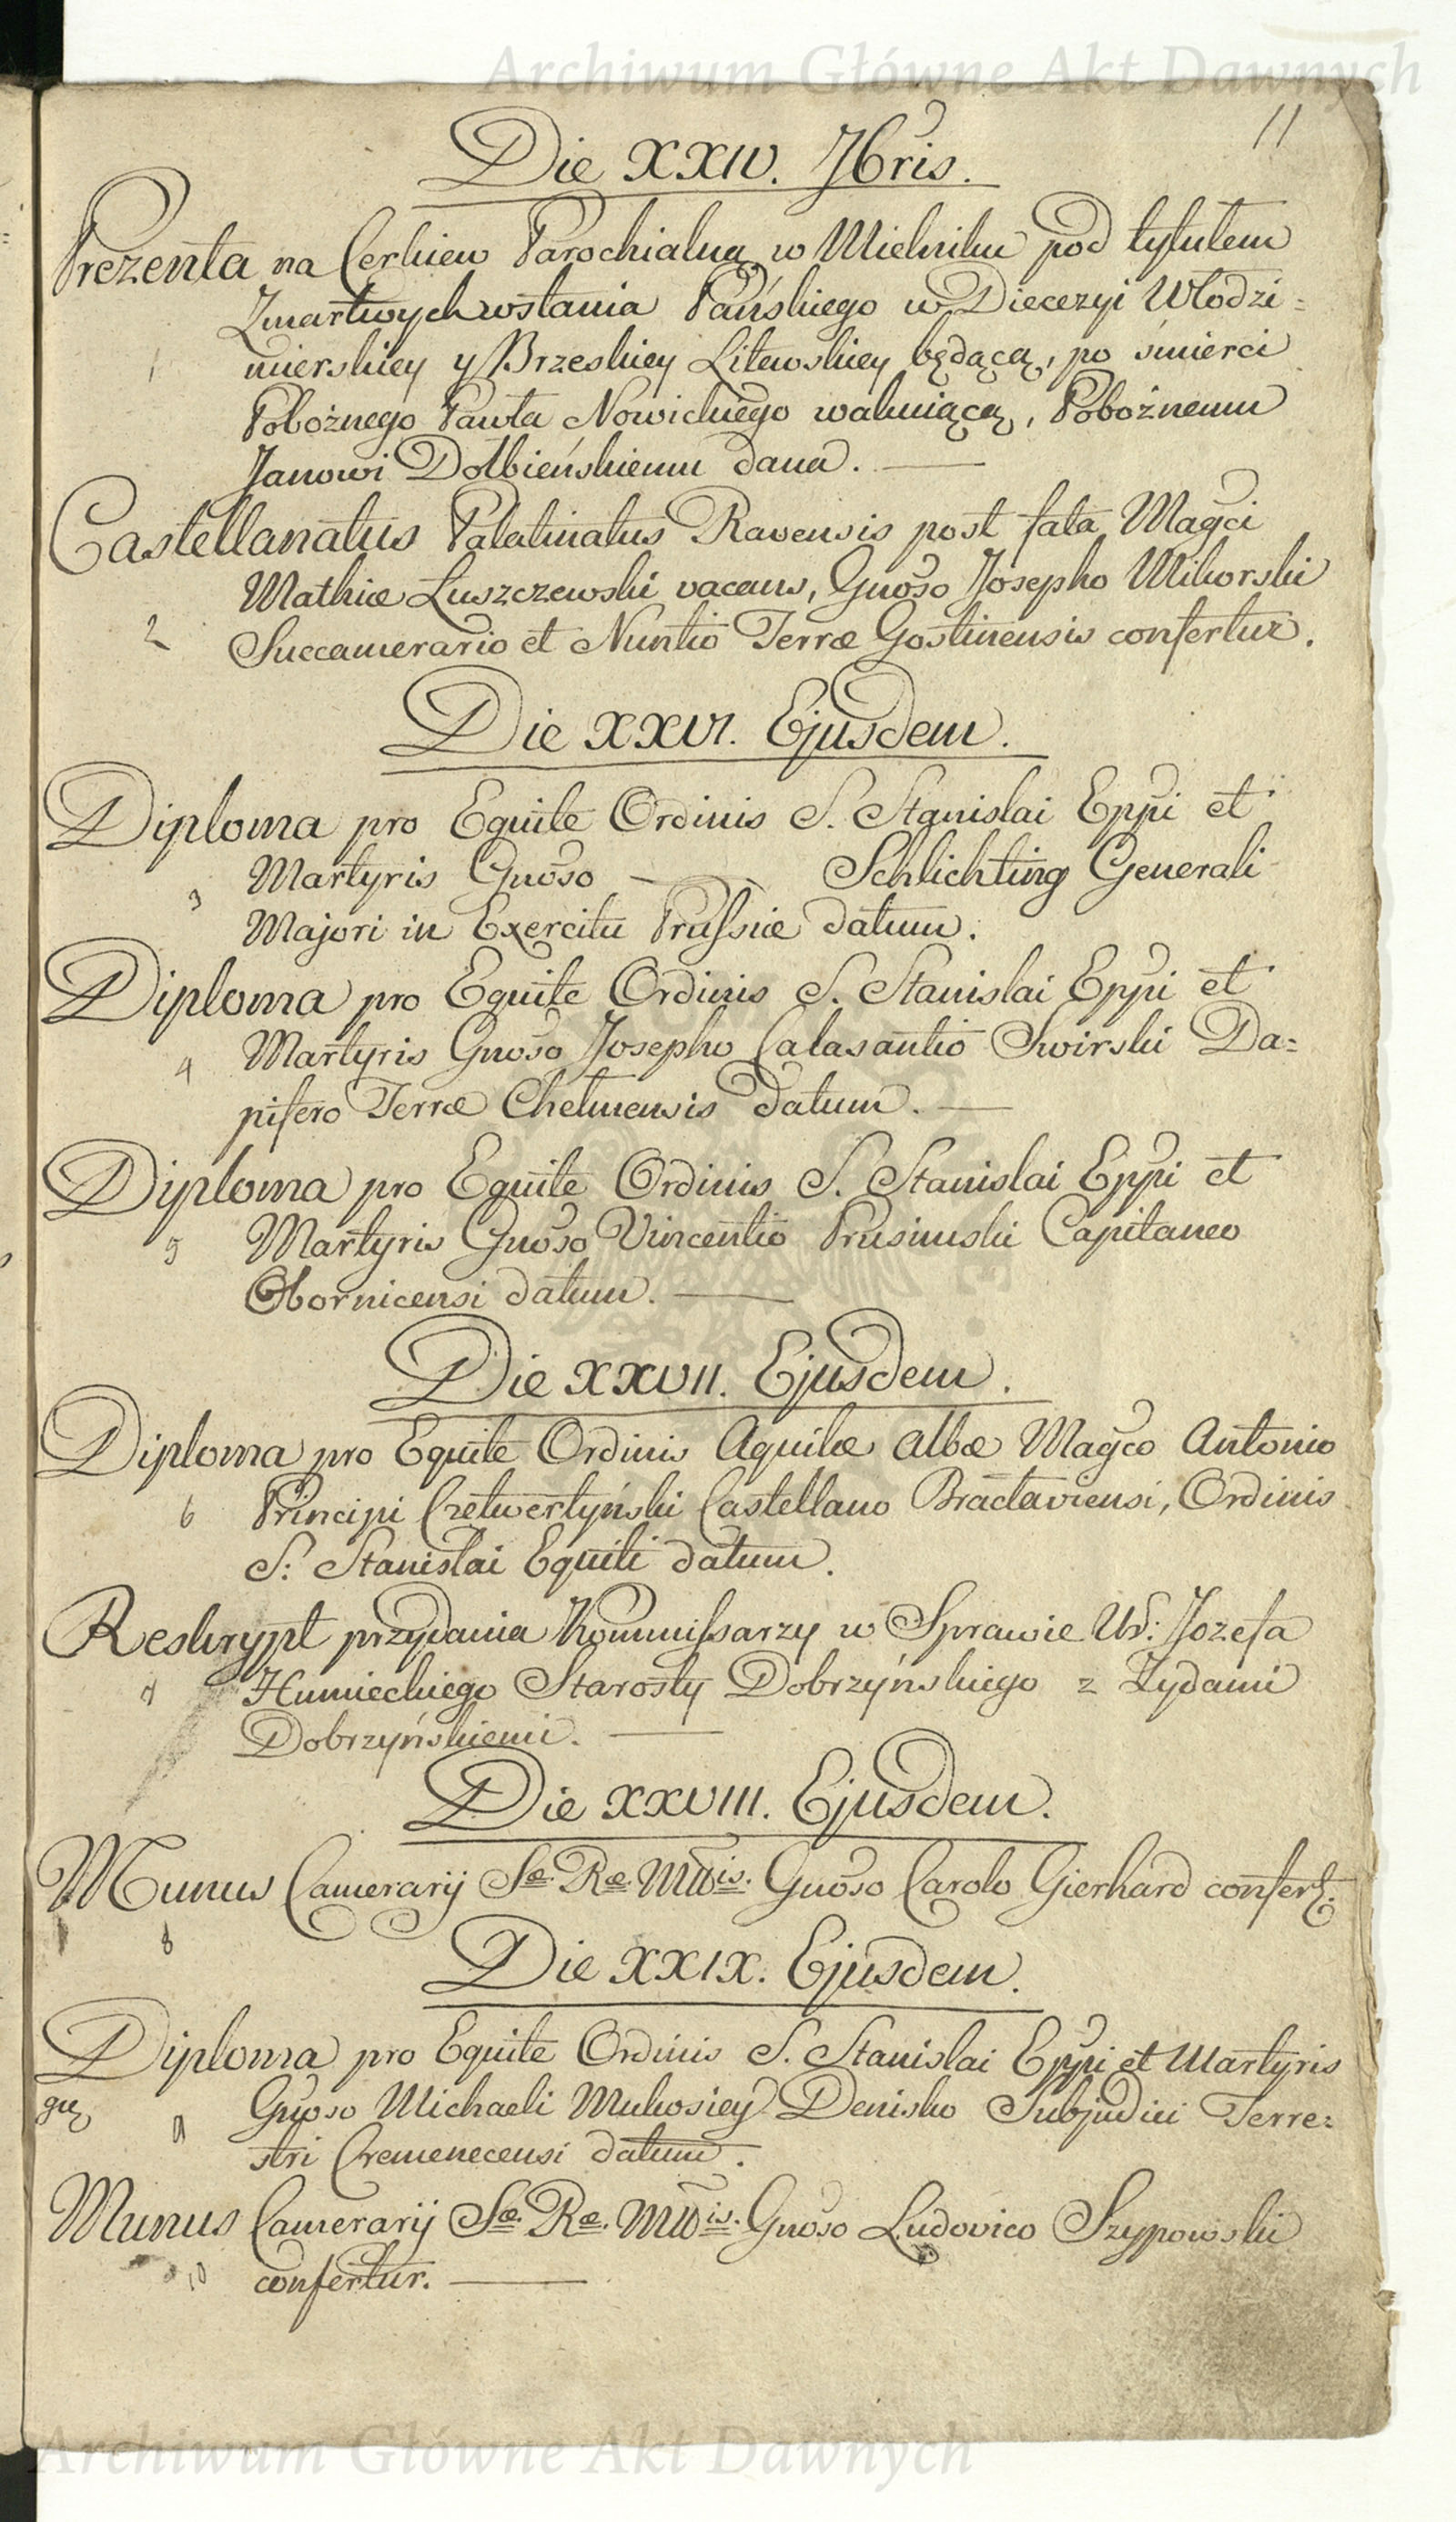 Archiwum Główne Akt Dawnych
11
Die XXIV. 7bris.
Prezenta na Cerkiew Parochialną w Mielniku pod tytułem
Zmartwychwstania Pańskiego w Diecezyi Włodzi=
1 mierskiey y Brzeskiey Litewskiey będącą, po śmierci
Pobożnego Pawła Nowickiego wakuiącą, Pobożnemu
Janowi Dołbieńskiemu dana.
Castellanatus Palatinatus Ravensis post fata Magci
Mathiæ Luszczewski vacans, Gnoso Josepho Mikorski
2 Succamerario et Nuntio Terræ Gostinensis confertur.
Die XXVI. Ejusdem.
Diploma pro Equite Ordinis S. Stanislai Eppi et
3 Martyris Gnoso — Schlichting Generali
Majori in Exercitu Prussiæ datum.
Diploma pro Equite Ordinis S. Stanislai Eppi et
4 Martyris Gnoso Josepho Calasantio Swirski Da=
pifero Terræ Chelmensis datum.
Diploma pro Equite Ordinis S. Stanislai Eppi et
5 Martyris Gnoso Vincentio Prusimski Capitaneo
Obornicensi datum.
Die XXVII. Ejusdem.
Diploma pro Equite Ordinis Aquilæ Albæ Magco Antonio
6 Principi Czetwertyński Castellano Bractaviensi, Ordinis
S: Stanislai Equiti datum.
Reskrypt przydania Kommissarzy w Sprawie Ur: Jozefa
7 Humieckiego Starosty Dobrzyńskiego z Żydami
Dobrzyńskiemi.
Die XXVIII. Ejusdem.
Munus Camerarij Sæ. Ræ. Mttis. Gnoso Carolo Gierhard confert:
8
Die XXIX. Ejusdem.
Diploma pro Equite Ordinis S. Stanislai Eppi et Martyris
9 Gnoso Michaeli Mukosiey Denisko Subjudici Terre=
stri Cremenecensi datum.
Munus Camerarij Sæ. Ræ. Mttis. Gnoso Ludovico Szypowski
10 confertur.
Archiwum Główne Akt Dawnych